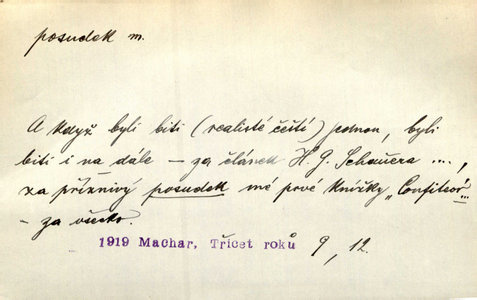 posudek m.
A když byli biti (realisté čeští) jednou, byli
biti i na dále – za článek H. G. Schauera ...,
za příznivý posudek mé prvé knížky „Confiteor"...
– za všecko.
1919 Machar, Třicet roků 9, 12.